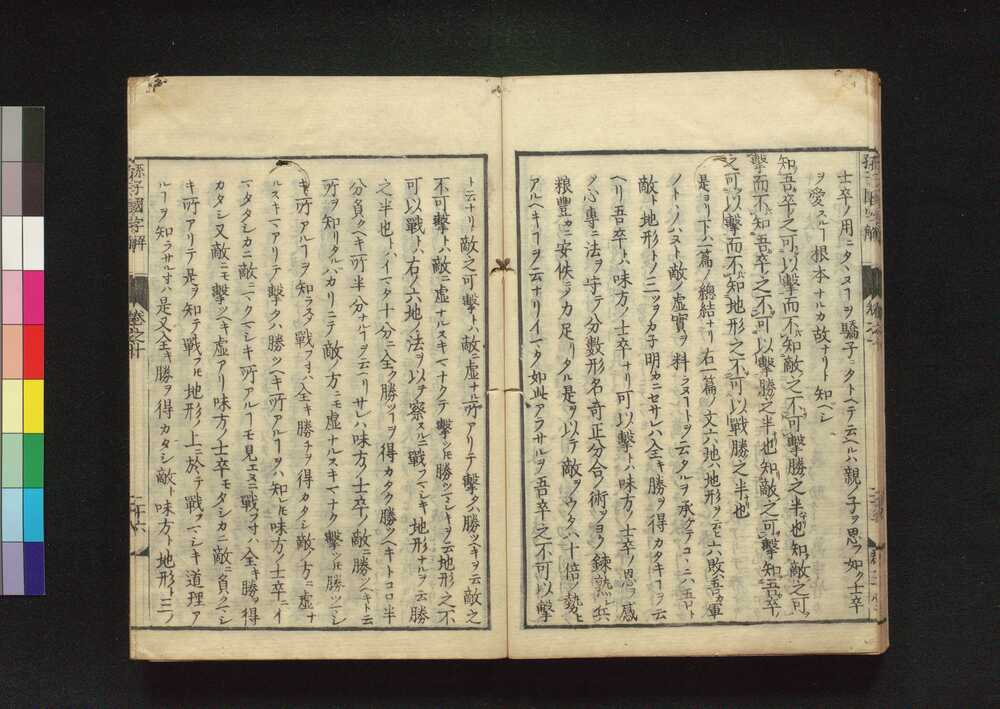 士卒ノ用ニタヽヌヿヲ驕子ニタトヘテ云ヘルハ親ノ子ヲ思フ如ク士卒
ヲ愛スルヿ根本ナルカ故ナリト知ヘシ
知吾卒之可以擊而不知敵之不可擊勝之半也知敵之可
擊而不知吾卒之不可以擊勝之半也知敵之可擊知吾卒
之可以擊而不知地形之不可以戰勝之半也
是ヨリ下ハ一篇ノ總結ナリ右一篇ノ文六地ハ地形ヲ云ヒ六敗ハ吾カ軍
ノトヽノハヌト敵ノ虛實ヲ料ラヌトヲ云タルヲ承ケテコヽニハ吾ト
敵ト地形トノ三ツヲカ子明メニセサレハ全キ勝ヲ得カタキヿヲ云
ヘリ吾卒トハ味方ノ士卒ナリ可以擊トハ味方ノ士卒ノ恩ヲ感
心專ニ法ヲ守テ分數形名奇正分合ノ術ヲヨク鍊熟シ兵
粮豐カニ安佚ニシテカ足リタル是ヲ以テ敵ヲウタハ十倍ノ勢ヒ
アルヘキヿヲ云ナリイマタ如此アラサルヲ吾卒之不可以擊
ト云ナリ敵之可擊トハ敵ニ虛ナル所アリテ擊タハ勝ツヘキヲ云敵之
不可擊トハ敵ニ虛ナルスキマナクテ擊シモ勝ツマシキヲ云地形之不
可以戰トハ右ノ六地ノ法ヲ以テ察スルニ戰フマシキ地形ナルヲ云勝
之半也トハイマタ十分ニ全ク勝ツヿヲ得カタク勝ツヘキトコロ半
分負クヘキ所半分ナルヿヲ云ヘリサレハ味方ノ士卒ノ敵ニ勝ツヘキト云
所ヲ知リタルハカリニテ敵ノ方ニモ虛ナルスキマナク擊シモ勝ツマシ
キ所アルヿヲ知ラスシテ戰フ寸ハ全キ勝チヲ得カタシ敵ノ方ニ虛ナ
ルスキマアリテ擊タハ勝ツヘキ所アルヿヲハ知レヒ味方ノ士卒ニイ
マタタシカニ敵ニマクマシキ所アルヿモ見エヌニ戰フ寸ハ全キ勝ヲ得
カタシ又敵ニモ擊ツヘキ虛アリ味方ノ士卒モタシカニ敵ニ負クマシ
キ所アリテ是ヲ知テ戰フ𪜈地形ノ上ニ於テ戰フマシキ道理ア
ルヿヲ知ラサル寸ハ是又全キ勝ヲ得カタシ敵ト味方ト地形ト三ツ
孫子國字解
卷之十
二十六